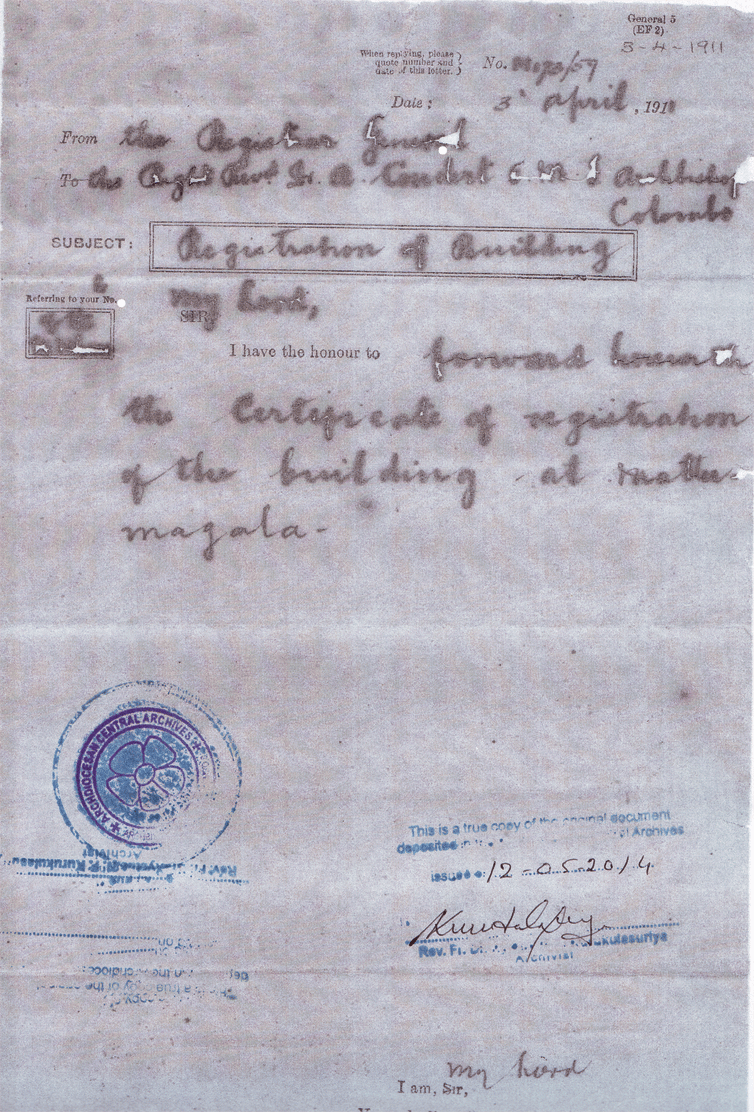 General 5
(EF 2)
3-4-1911
When replying, please
quote number and
date of this letter.
No.
Date: 3 April, 191
From the Registrar General
To the Right Revd. Dr. A. Coudert O.M.I Archbishop
Colombo
SUBJECT: Registration of Building
Referring to your No.
My Lord,
SIR,
I have the honour to forward herewith
the Certificate of registration
of the building at Matta
magala-
ARCHDIOCESAN CENTRAL ARCHIVES
This is a true copy of the original document
deposited in Archives
issued 12-05-2014
Rev. Fr. Kurukulasuriya
Archivist
Rev. Fr. Kurukulasu
Archivist
My Lord
I am, Sir,